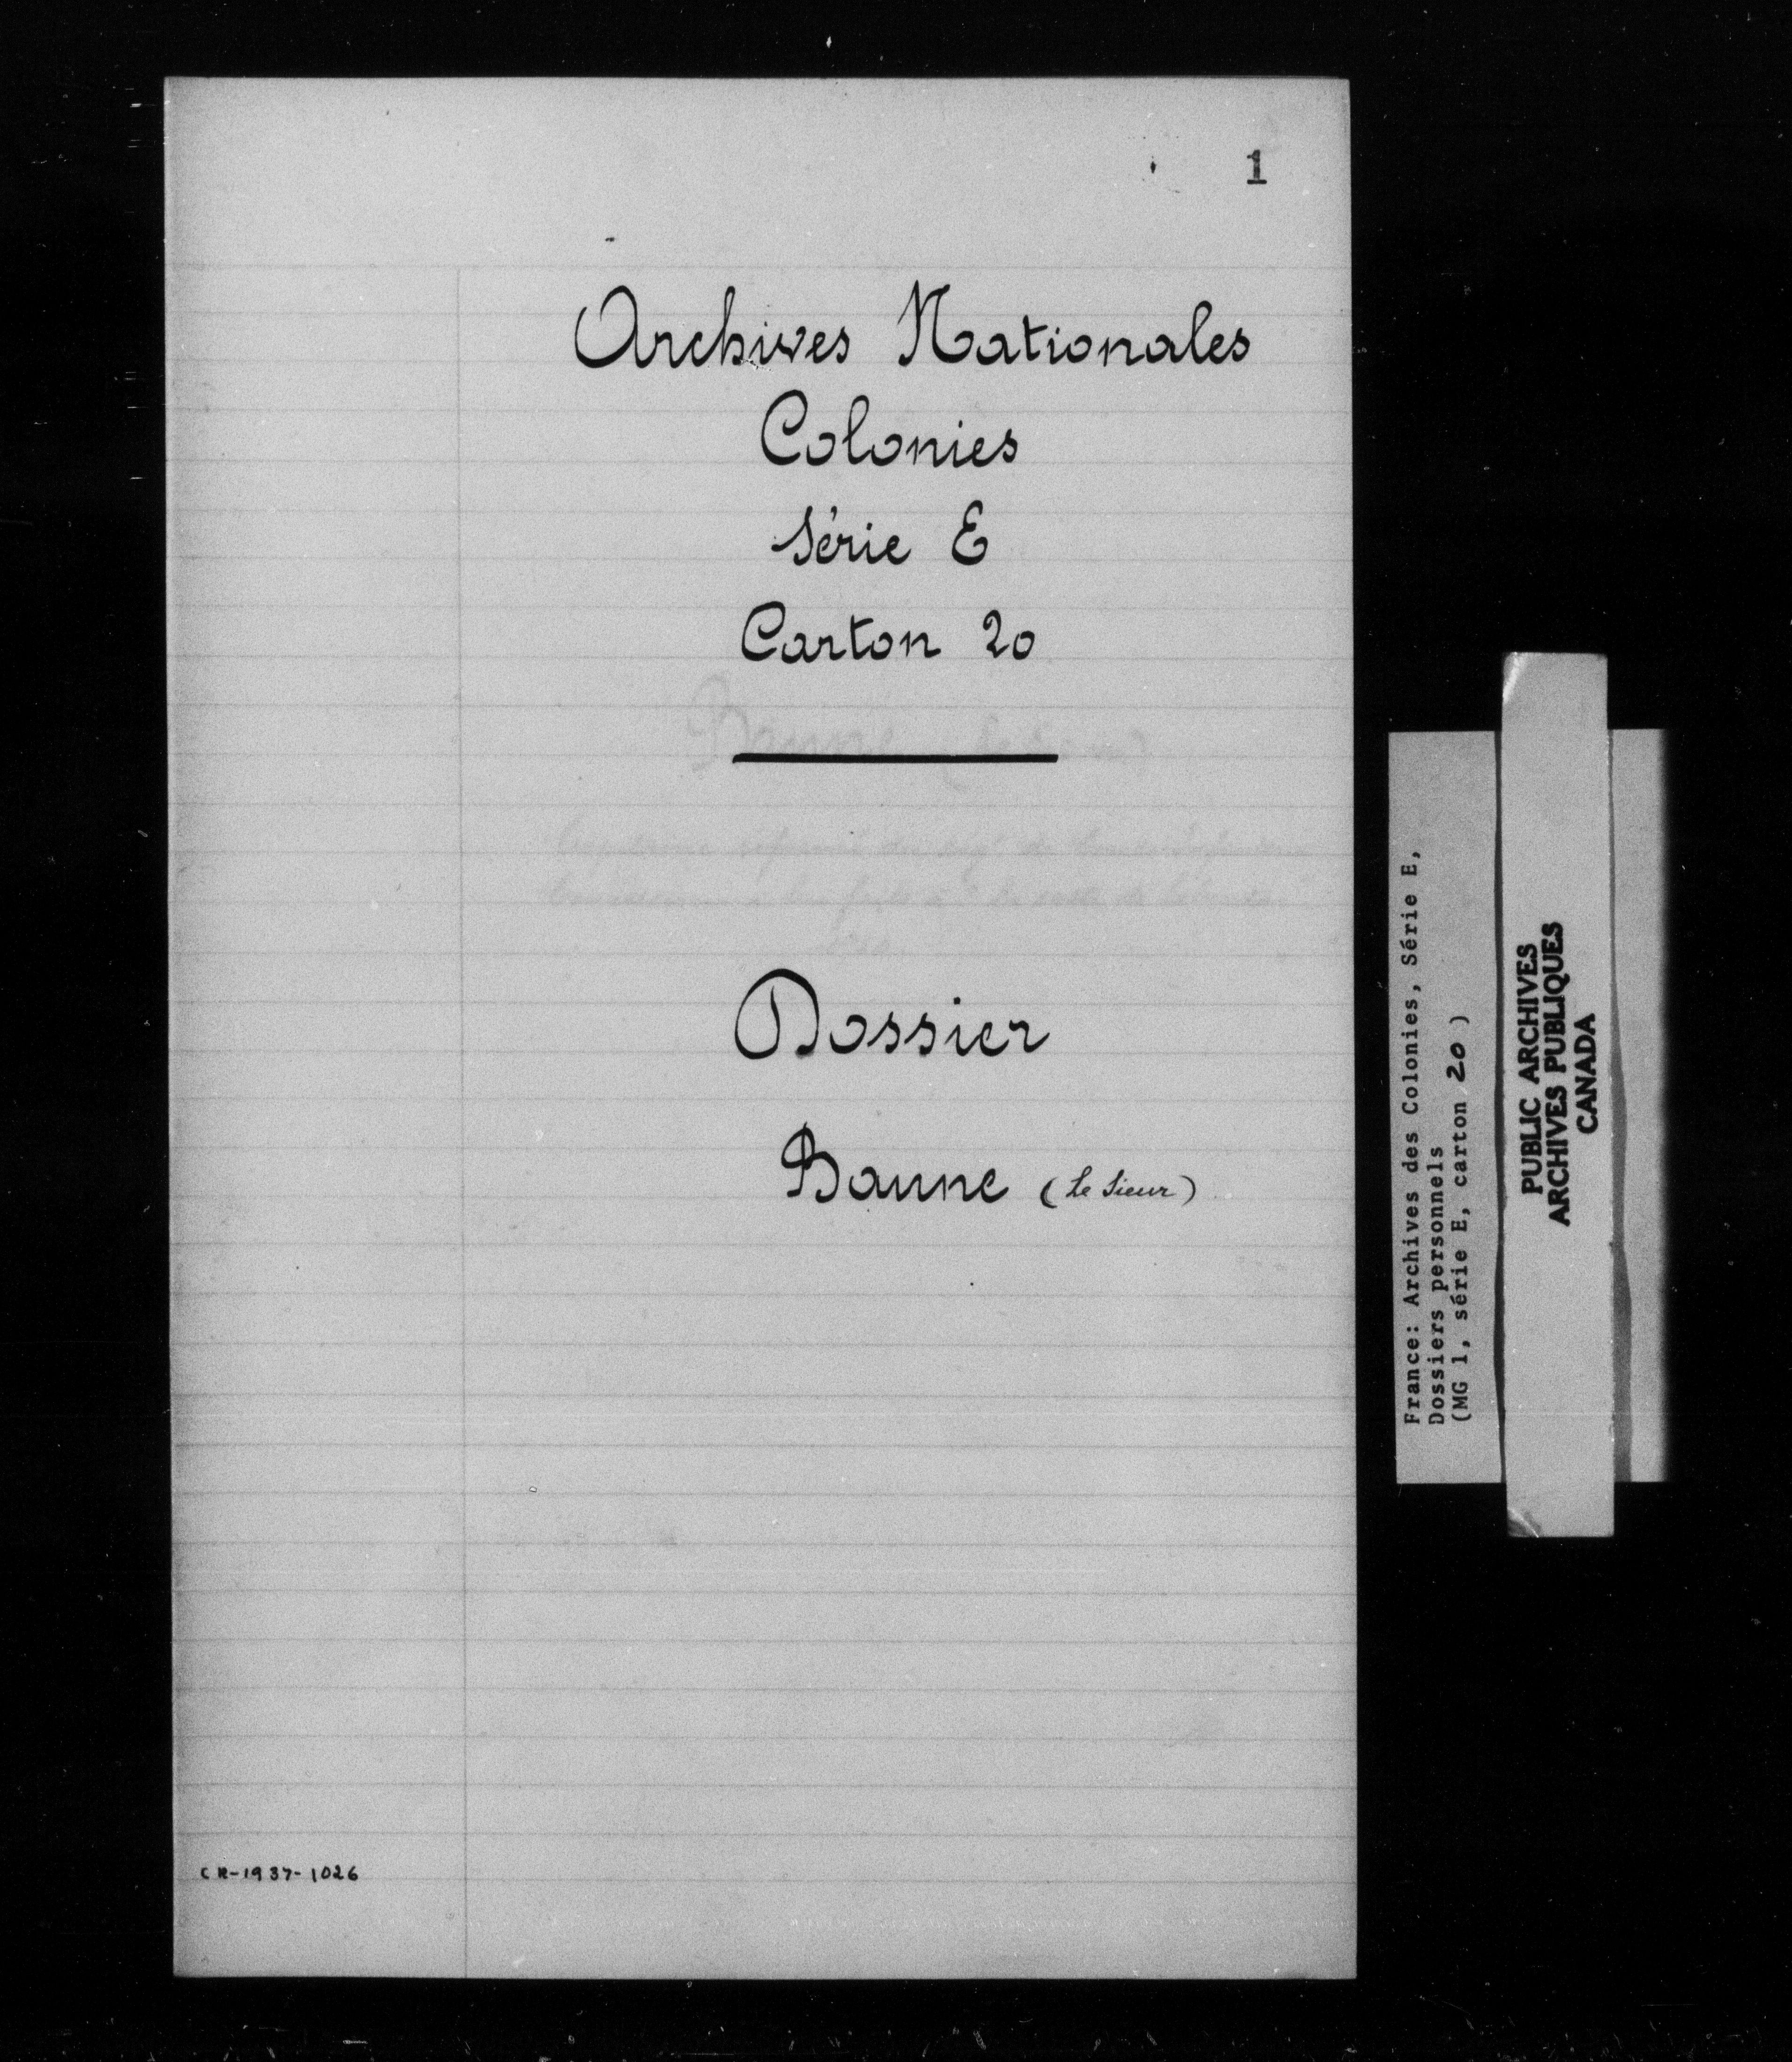 1
Archives Nationales
Colonies
Série E
Carton 20
Dossier
Baune (Le Sieur)
CR-1937-1026
France: Archives des Colonies, Série E,
Dossiers personnels
(MG 1, série E, carton 20)
PUBLIC ARCHIVES
ARCHIVES PUBLIQUES
CANADA